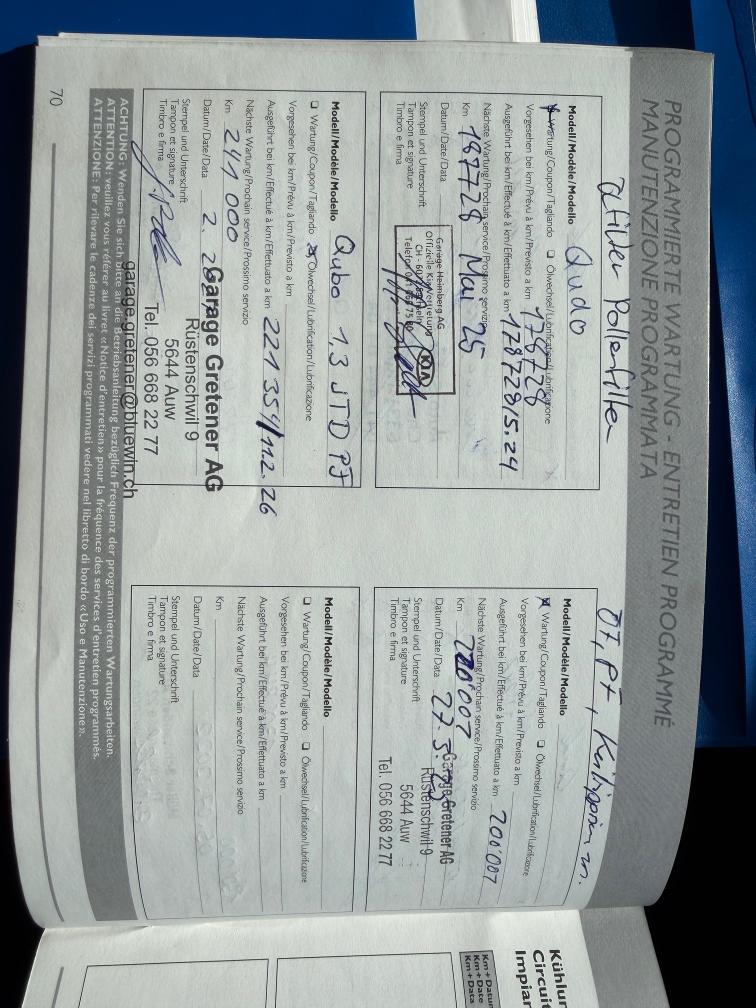 PROGRAMMIERTE WARTUNG - ENTRETIEN PROGRAMME
MANUTENZIONE PROGRAMMATA
Pollenfilter
Modell/Modèle/Modello Qudo
Wartung/Coupon/Tagliando ❑ Ölwechsel/Lubrification/Lubrificazione
Vorgesehen bei km/Prévu à km/Previsto a km 178728
Ausgeführt bei km/Effectué à km/Effettuato a km 178728/5.24
Nächste Wartung/Prochain service/Prossimo servizio
Km 197728 Mai 25
Datum/Date/Data
Stempel und Unterschrift
Tampon et signature
Timbro e firma
Garage Heimberg AG
Offizielle Kia-Vertretung
KIA
Modell/Modèle/Modello Qubo 1,3 JTD PF
❑ Wartung/Coupon/Tagliando Ölwechsel/Lubrification/Lubrificazione
Vorgesehen bei km/Prévu à km/Previsto a km
Ausgeführt bei km/Effectué à km/Effettuato a km 221 354/11.2.26
Nächste Wartung/Prochain service/Prossimo servizio
Km 241 000
Datum/Date/Data 2. 2
Stempel und Unterschrift
Tampon et signature
Timbro e firma
Garage Gretener AG
Rüstenschwil 9
5644 Auw
Tel. 056 668 22 77
garage.gretener@bluewin.ch
ÖF, PF,
Modell/Modèle/Modello
Wartung/Coupon/Tagliando ❑ Ölwechsel/Lubrification/Lubrificazione
Vorgesehen bei km/Prévu à km/Previsto a km
Ausgeführt bei km/Effectué à km/Effettuato a km 200'007
Nächste Wartung/Prochain service/Prossimo servizio
Km 220'007
Datum/Date/Data 27.5.
Stempel und Unterschrift
Tampon et signature
Timbro e firma
Garage Gretener AG
Rüstenschwil 9
5644 Auw
Tel. 056 668 22 77
Modell/Modèle/Modello
❑ Wartung/Coupon/Tagliando ❑ Ölwechsel/Lubrification/Lubrificazione
Vorgesehen bei km/Prévu à km/Previsto a km
Ausgeführt bei km/Effectué à km/Effettuato a km
Nächste Wartung/Prochain service/Prossimo servizio
Km
Datum/Date/Data
Stempel und Unterschrift
Tampon et signature
Timbro e firma
ACHTUNG: Wenden Sie sich bitte an die Betriebsanleitung bezüglich Frequenz der programmierten Wartungsarbeiten.
ATTENTION: veuillez vous référer au livret «Notice d'entretien» pour la fréquence des services d'entretien programmés.
ATTENZIONE: Per rilevare le cadenze dei servizi programmati vedere nel libretto di bordo «Uso e Manutenzione».
70
Kühlu
Circui
Impian
Km + Datum
Km + Date
Km + Data